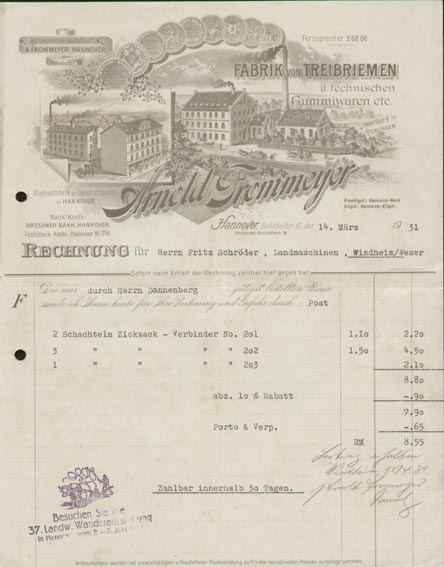 A. FROMMEYER, HANNOVER.
Fernsprecher 26866
FABRIK VON TREIBRIEMEN
u. technischen
Gummiwaren etc.
Arnold Frommeyer
Riemenfabrik u. Geschäftshaus
in HANNOVER
Bank Konto
DRESDNER BANK, HANNOVER.
Postscheck Konto: Hannover № 216
Frachtgut: Hannover-Nord
Eilgut: Hannover-Eilgut
Hannover, Bahnhofstr. 10, den 14. März 1931
RECHNUNG für Herrn Fritz Schröder , Landmaschinen , Windheim/Weser
Sofort nach Erhalt der Rechnung zahlbar hier gegen bar.
F
Die mir durch Herrn Dannenberg gütigst bestellten Waren
sende ich Ihnen heute für Ihre Rechnung und Gefahr durch Post
2 Schachteln Zickzack - Verbinder No. 201 1.10 2.20
3 " " " " 202 1.50 4.50
1 " " " " 203 2.10
8.80
abz. 10 % Rabatt -.90
7.90
Porto & Verp. -.65
RM 8.55
Betrag erhalten
Zahlbar innerhalb 30 Tagen.
Arnold Frommeyer
Besuchen Sie die
37. Landw. Wanderausstellung
in Hannover vom 2. - 7. Juni